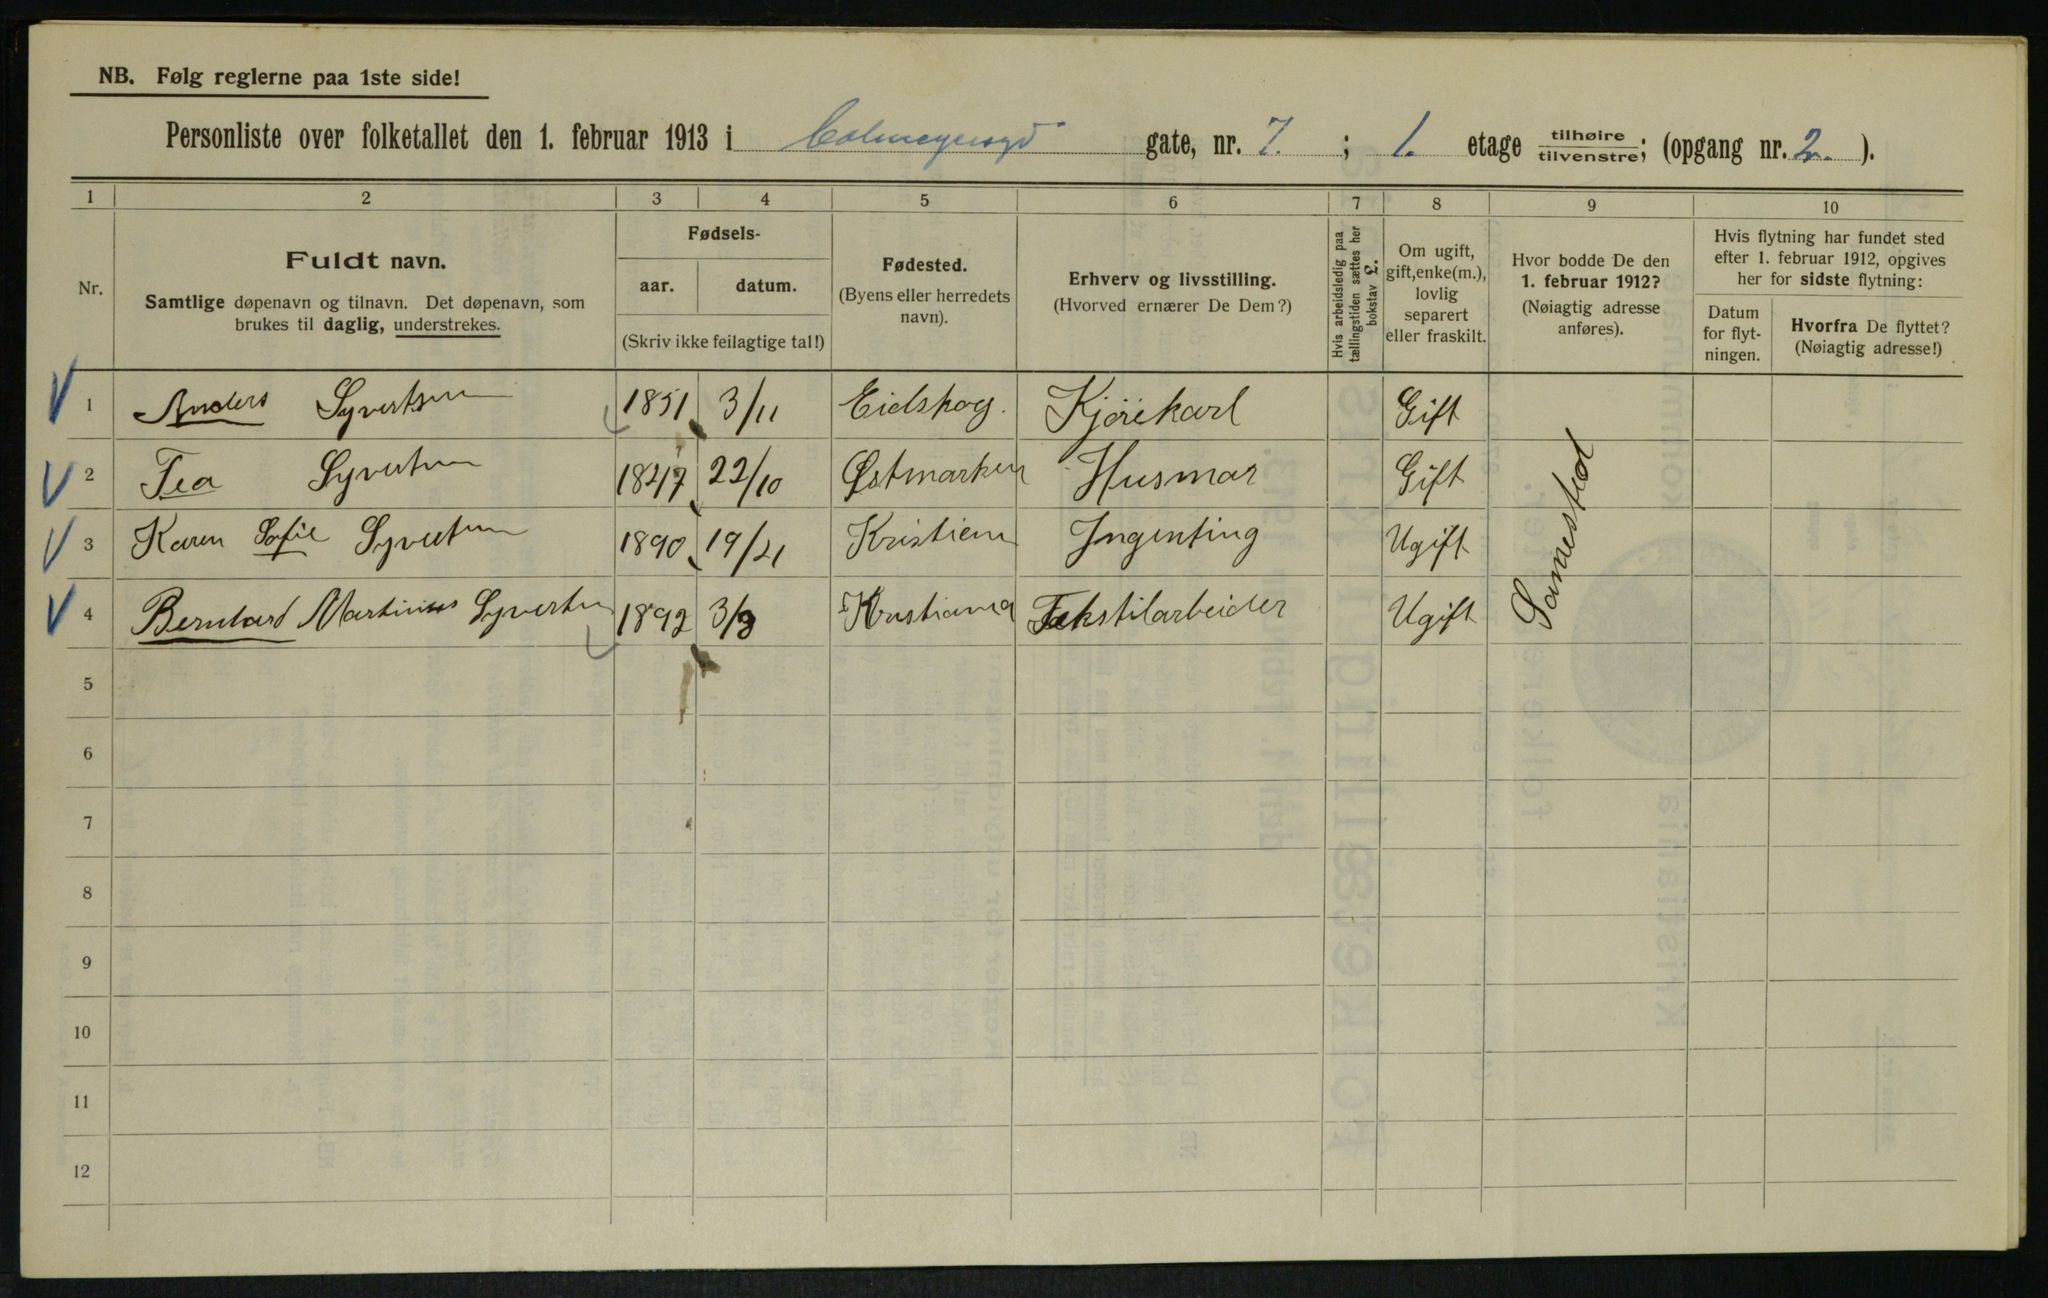 NB. Følg reglerne paa 1ste side!
Personliste over folketallet den 1. februar 1913 i Colmeyersgd gate, nr. 7. ; 1. etage tilhøire/tilvenstre; (opgang nr. 2. ).
1 2 3 4 5 6 7 8 9 10
Nr.
Fuldt navn.
Samtlige døpenavn og tilnavn. Det døpenavn, som
brukes til daglig, understrekes.
Fødsels-
aar. datum.
(Skriv ikke feilagtige tal!)
Fødested.
(Byens eller herredets
navn).
Erhverv og livsstilling.
(Hvorved ernærer De Dem?)
Hvis arbeidsledig paa
tællingstiden sættes her
bokstav L.
Om ugift,
gift, enke(m.),
lovlig
separert
eller fraskilt.
Hvor bodde De den
1. februar 1912?
(Nøiagtig adresse
anføres).
Hvis flytning har fundet sted
efter 1. februar 1912, opgives
her for sidste flytning:
Datum
for flyt-
ningen.
Hvorfra De flyttet?
(Nøiagtig adresse!)
1 Anders Syvertsen 1851 3/11 Eidskog. Kjörekarl Gift
2 Tea Syvertsen 1847 22/10 Østmarken Husmor Gift
3 Karen Sofie Syvertsen 1890 19/ Kristiania Ingenting Ugift
4 Bernhard Martinius Syvertsen 1892 Kristiania Tekstilarbeider Ugift
Samested
5
6
7
8
9
10
11
12